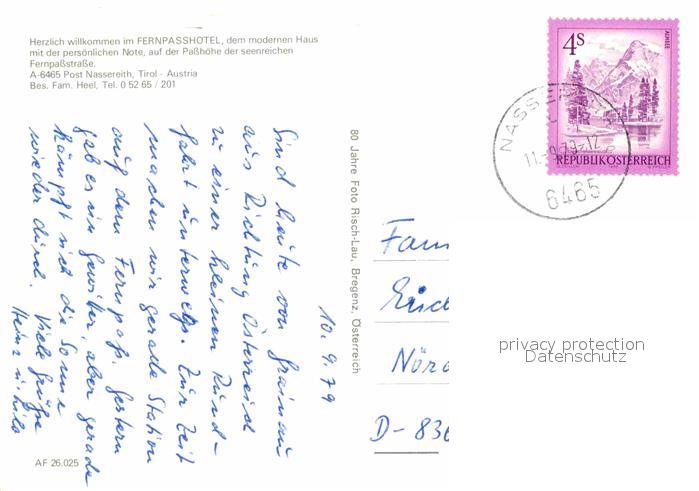 Herzlich willkommen im FERNPASSHOTEL, dem modernen Haus
mit der persönlichen Note, auf der Paßhöhe der seenreichen
Fernpaßstraße.
A-6465 Post Nassereith, Tirol - Austria
Bes. Fam. Heel, Tel. 0 52 65 / 201
4s
ALMSEE
REPUBLIK ÖSTERREICH
NASSE
11.-9.79-12
6465
80 Jahre Foto Risch-Lau, Bregenz, Österreich
10.9.79
Sind heute von Grainau
aus Richtung Österreich
zu einer kleinen Rund-
fahrt unterwegs. Zur Zeit
machen wir gerade Station
auf dem Fernpaß. Gestern
gab es ein Gewitter, aber gerade
kämpft sich die Sonne
wieder durch. Viele Grüße
Heinz u.
Fam
Erich
Nörd
D-836
privacy protection
Datenschutz
AF 26.025